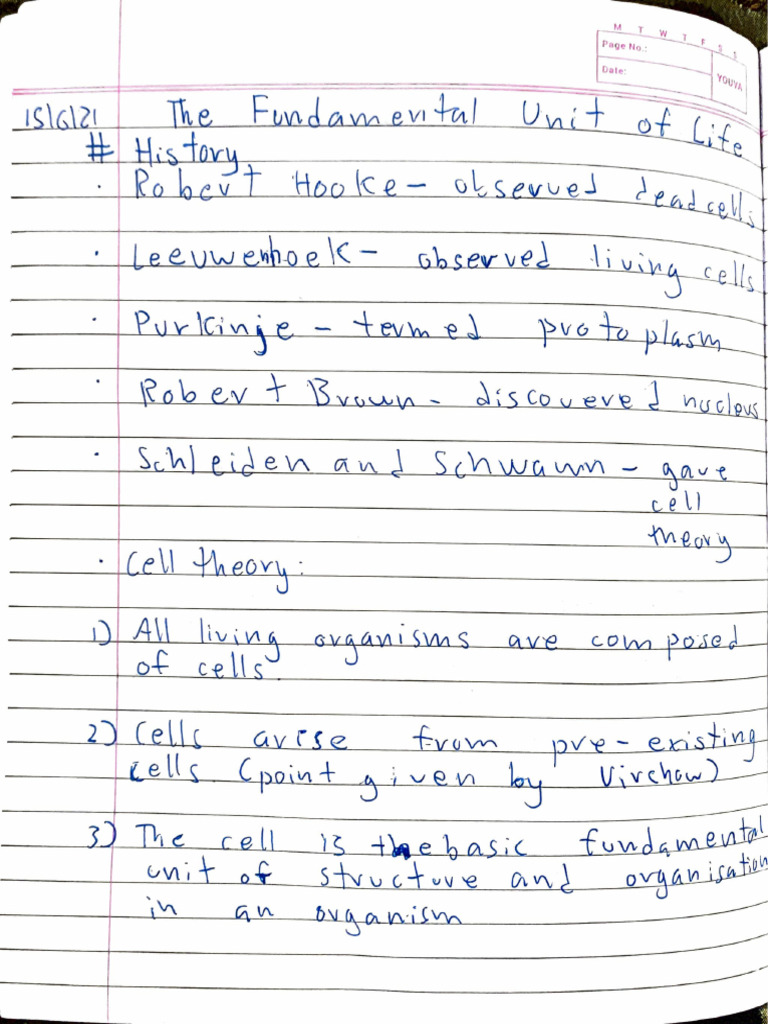 M T W T F S S
Page No.:
Date:
YOUVA
15/6/21 The Fundamental Unit of Life
# History
· Robert Hooke - observed dead cells
· Leeuwenhoek - observed living cells
· Purkinje - termed protoplasm
· Robert Brown - discovered nucleus
· Schleiden and Schwann - gave
cell
theory
· Cell theory:
1) All living organisms are composed
of cells.
2) Cells arise from pre-existing
cells (point given by Virchow)
3) The cell is the basic fundamental
unit of structure and organisation
in an organism